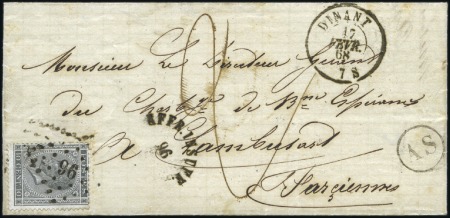 DINANT
17
FEVR
68
7 S
Monsieur Le Directeur Gérant
du Charb.ge de B.ne Espérance
à Lambusart
Farciennes
96
96
AS